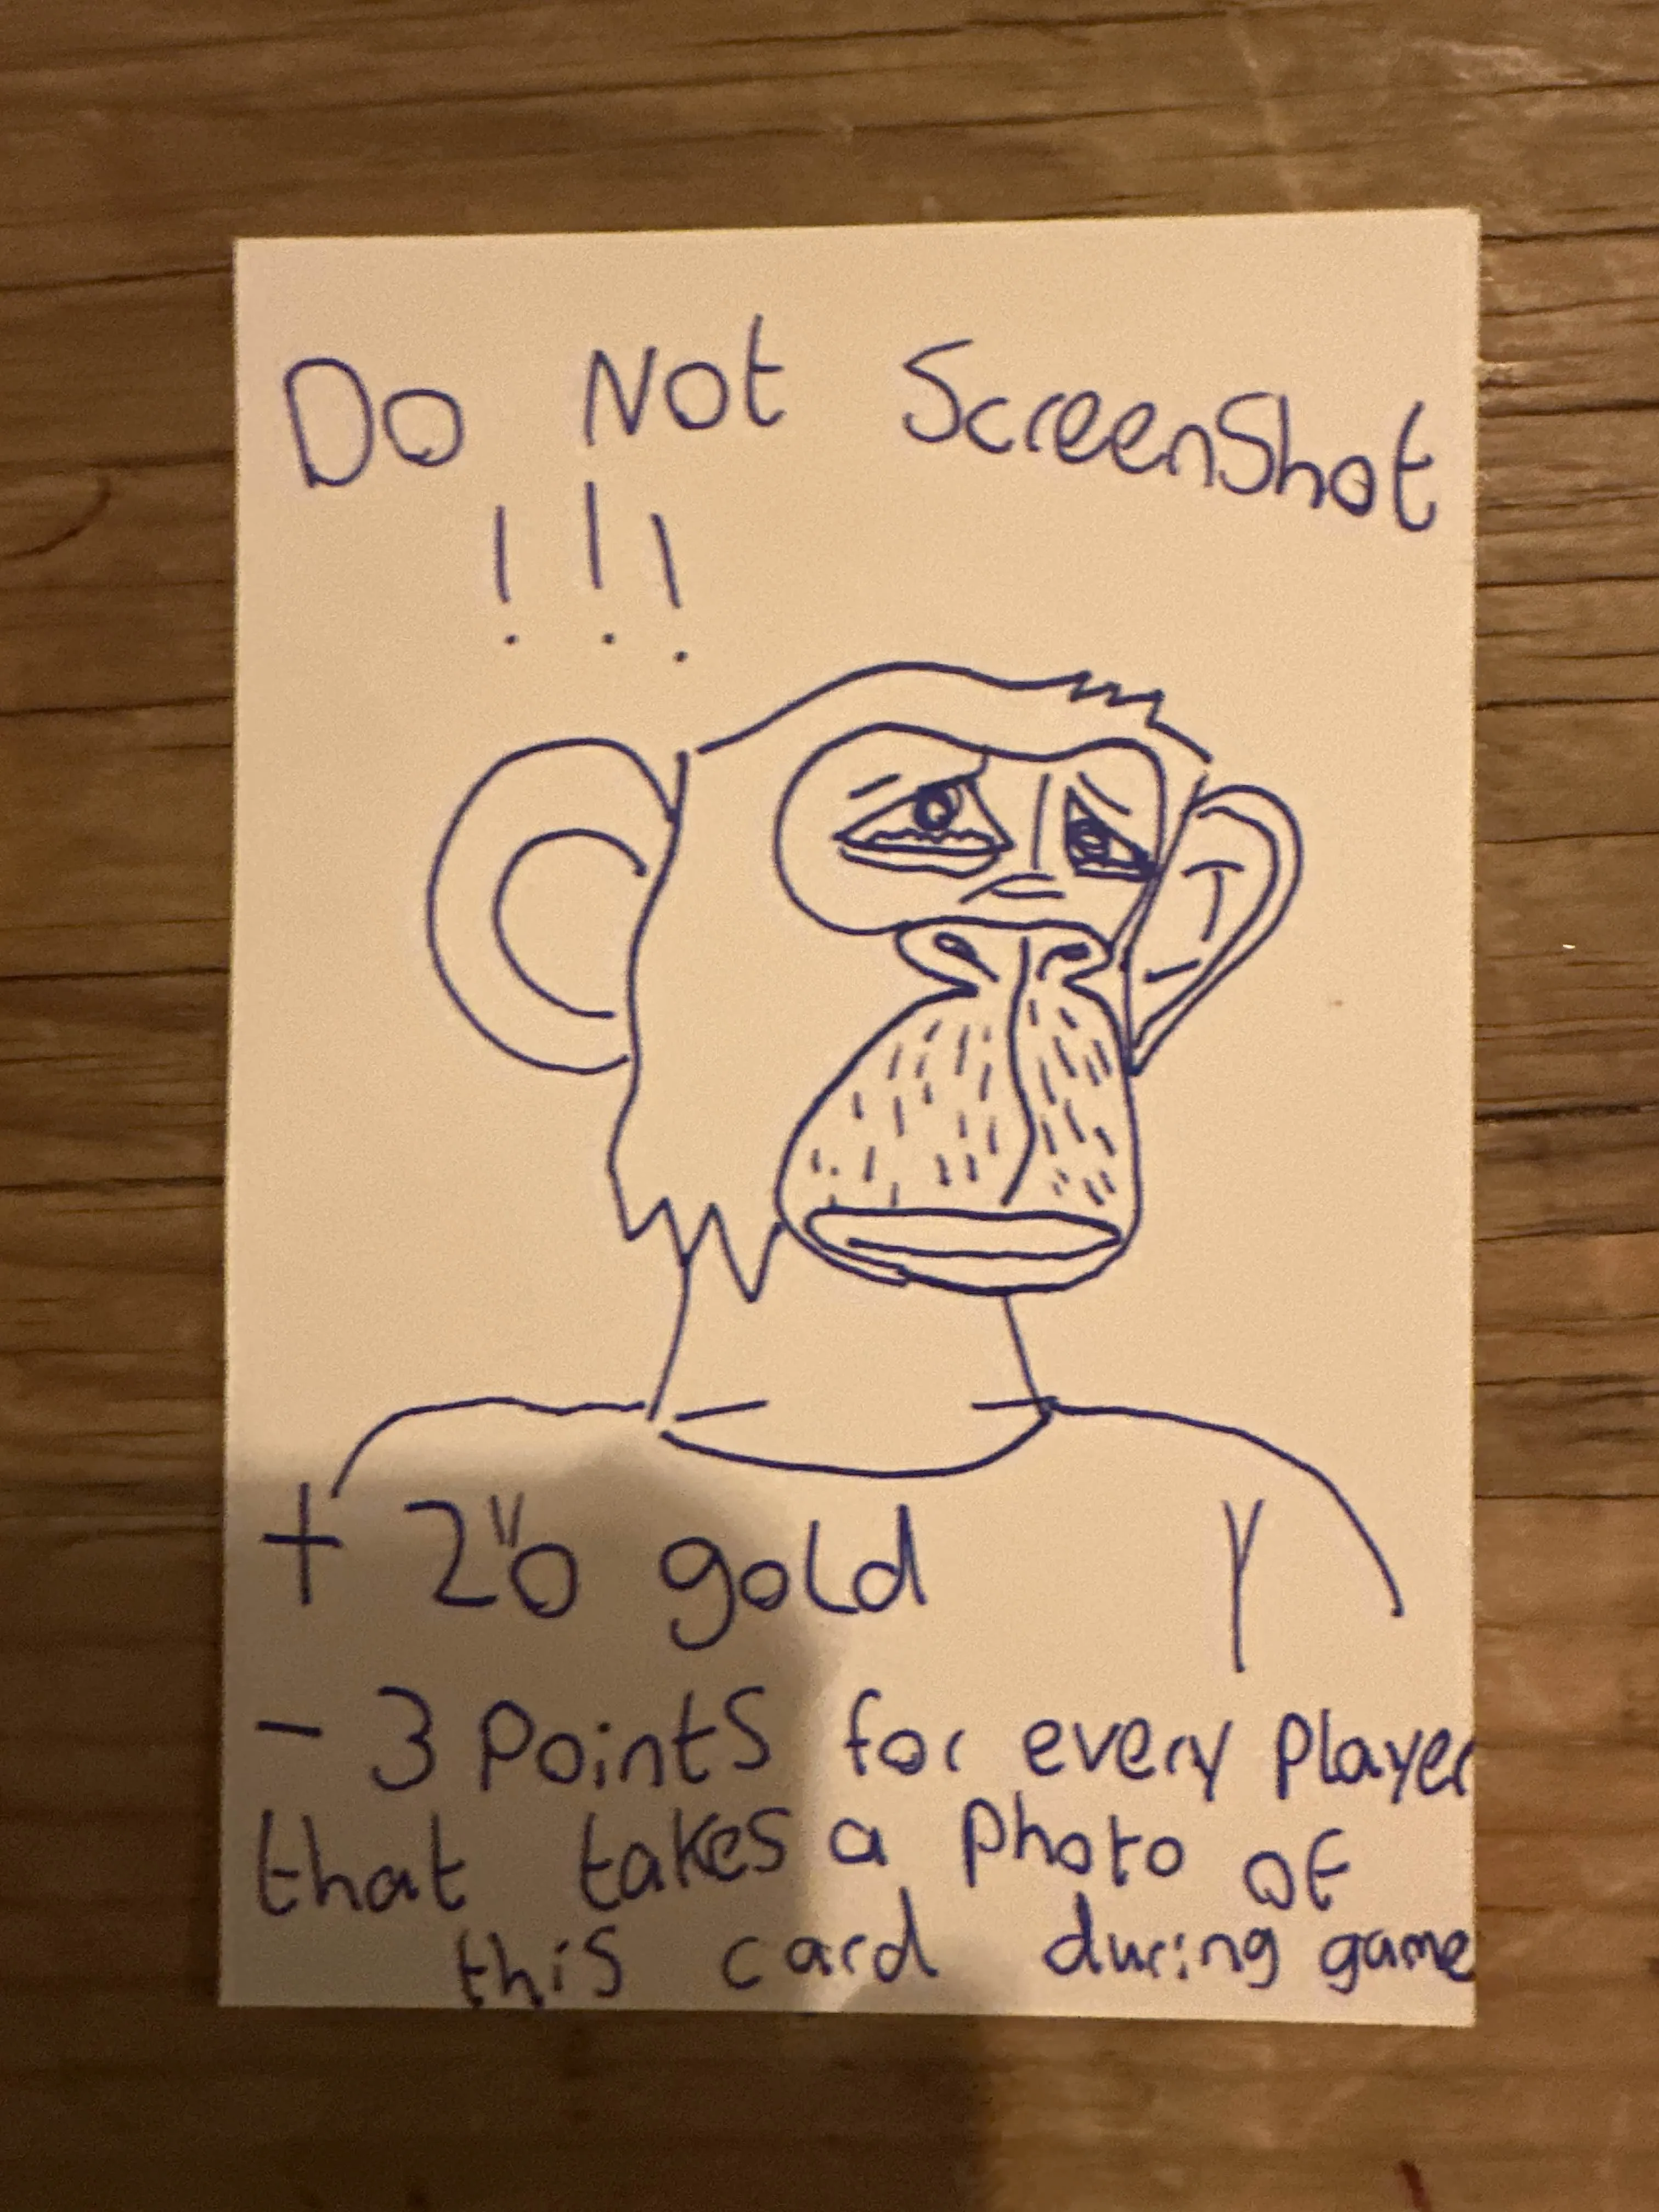 Do Not ScreenShot
!!!
+ 20 gold
- 3 Points for every Player
that takes a photo of
this card during game